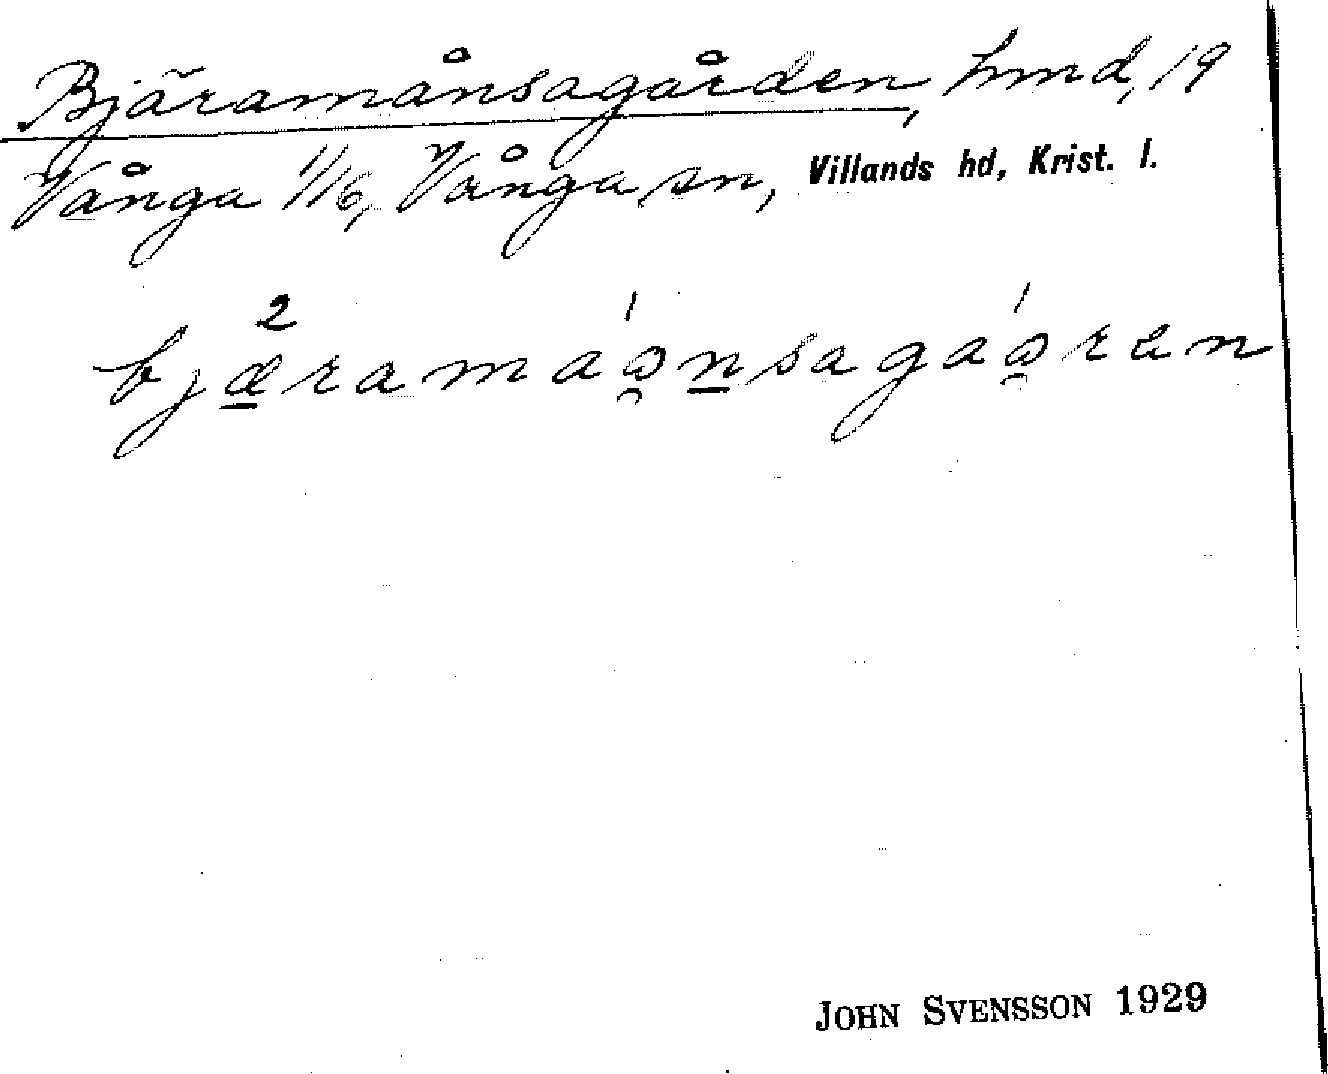 Bjäramånsagården, hmd, 19
Vånga 1/16, Vånga sn, Villands hd, Krist. l.
bjæ̲²ramaə̯́n̲sagaə̯́ren
JOHN SVENSSON 1929